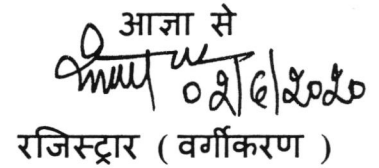 आज्ञा से
02/6/2020
रजिस्ट्रार ( वर्गीकरण )